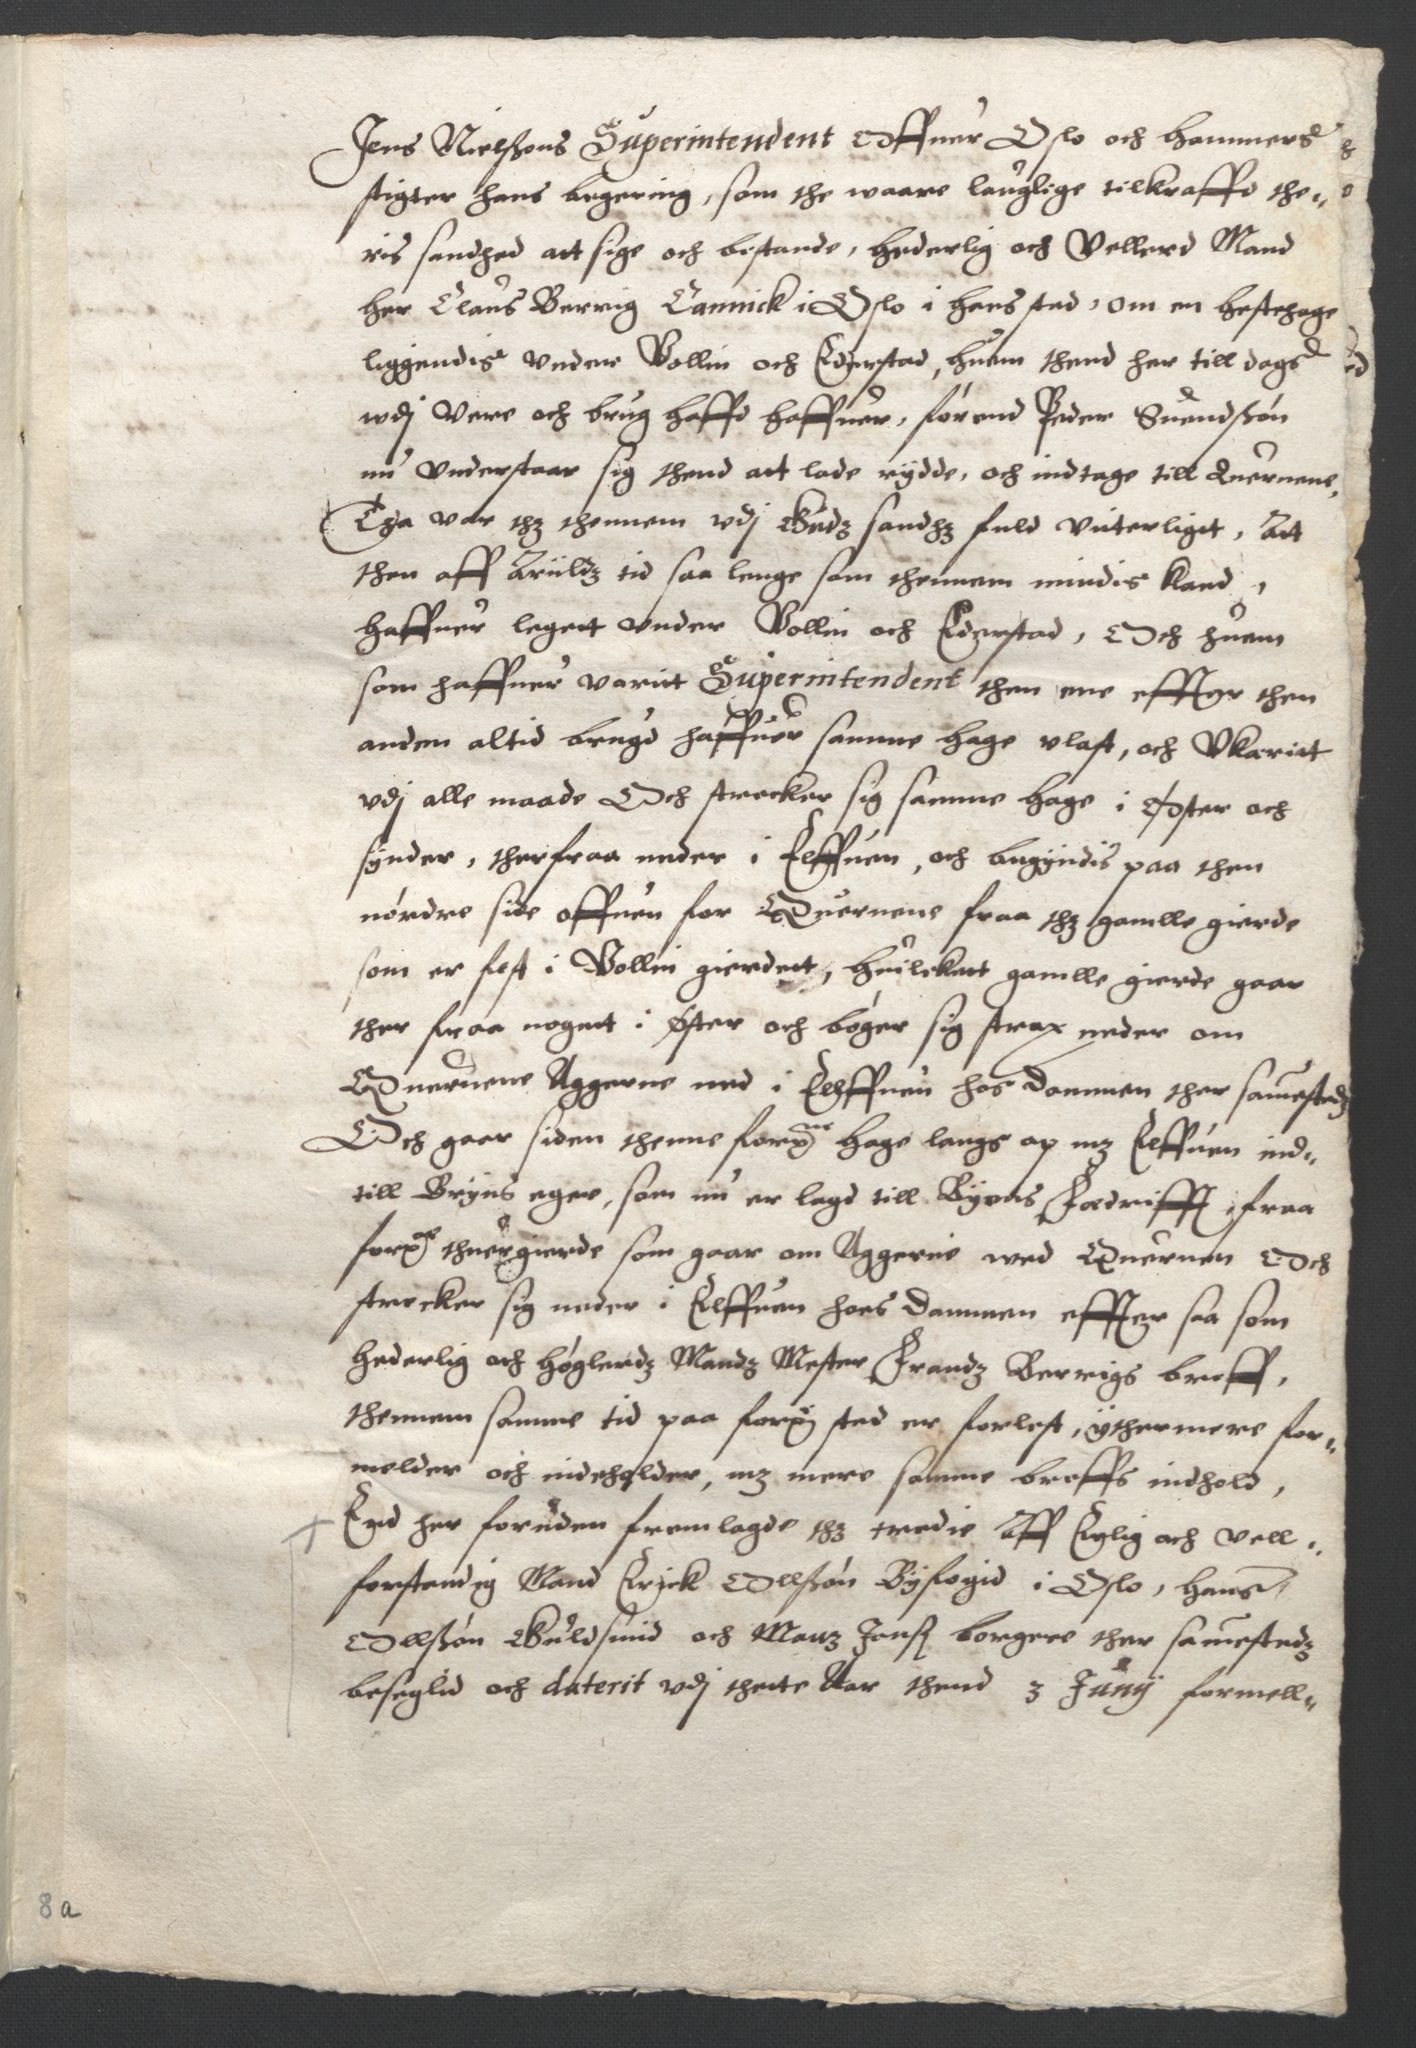 Jens Nielßøns Superintendent Offuer Oslo och Hammers
stigter hans begering, som the waare lauglige tilkraffd the„
ris sandhed att sige och bestande, Hederlig och Vellerd Mand
her Claus Berrig Cannick i Oslo i hans stad, om en hestehage
liggendis vnder Vollin och Ederstad, huem thend her till dags
wdj Vere och brug hafft haffuer, førend Peder Suendßøn
nu vnderstaar sig thend att lade rydde, och indtage till Quernene,
Tha var thz thennem vdj Gudz sandhz fuld vitterligt, Att
then aff Arildz tid saa lenge som thennem mindis kand,
haffuer legett vnder Vollin och Ederstad, Och huem
som haffuer varit Superintendent then ene effter then
anden altid brugd haffuer samme hage vlast, och Vkærit
vdj alle maade Och strecker sig samme hage i Øster och
synder, therfraa neder i Elffuen, och begyndis paa then
nørdre side offuen for Quernene fraa thz gamlle gierde
som er fest i Vollin gierdett, huilckett gamlle gierde gaar
ther fraa nogett i Øster och bøger sig strax neder om
Quernene Aggerne ned i Ellffuen hos Dammen ther samestedz
Och gaar siden thenne forne hage langs op mz Elffuen ind„
till Bryns eger, som nu er lagd till Byens Fædrifft, fraa
forne thuergierde som gaar om Aggerne wed Quernen Och
strecker sig neder i Elffuen hoes Dammen effter saa som
Hederlig och Høglerdz Mandz Mester Frandz Berrigs breff,
thennem samme tid paa forne sted er forlest, ythermere for„
melder och indeholder, mz mere samme breffs indhold,
End her foruden fremlagde thz tredie Aff Erlig och Vell„
forstandig Mand Erick Ollßøn Byfogid i Oslo, Hans
Ollßøn Guldsmid och Mauz Jenß borgere ther samestedz
beseglid och daterit vdj thette Aar thend 3 Junij formell„
8a